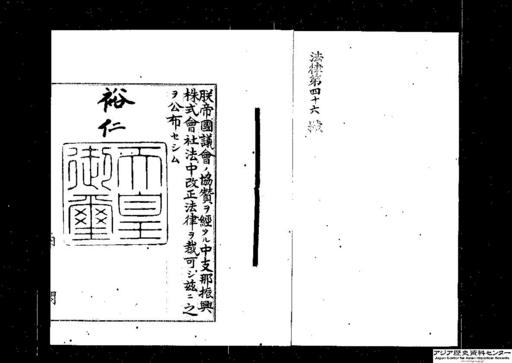 法律第四十六號
朕帝國議會ノ協贊ヲ經タル中支那振興
株式會社法中改正法律ヲ裁可シ茲ニ之
ヲ公布セシム
裕仁
天皇
御璽
内閣
アジア歴史資料センター
Japan Center for Asian Historical Records